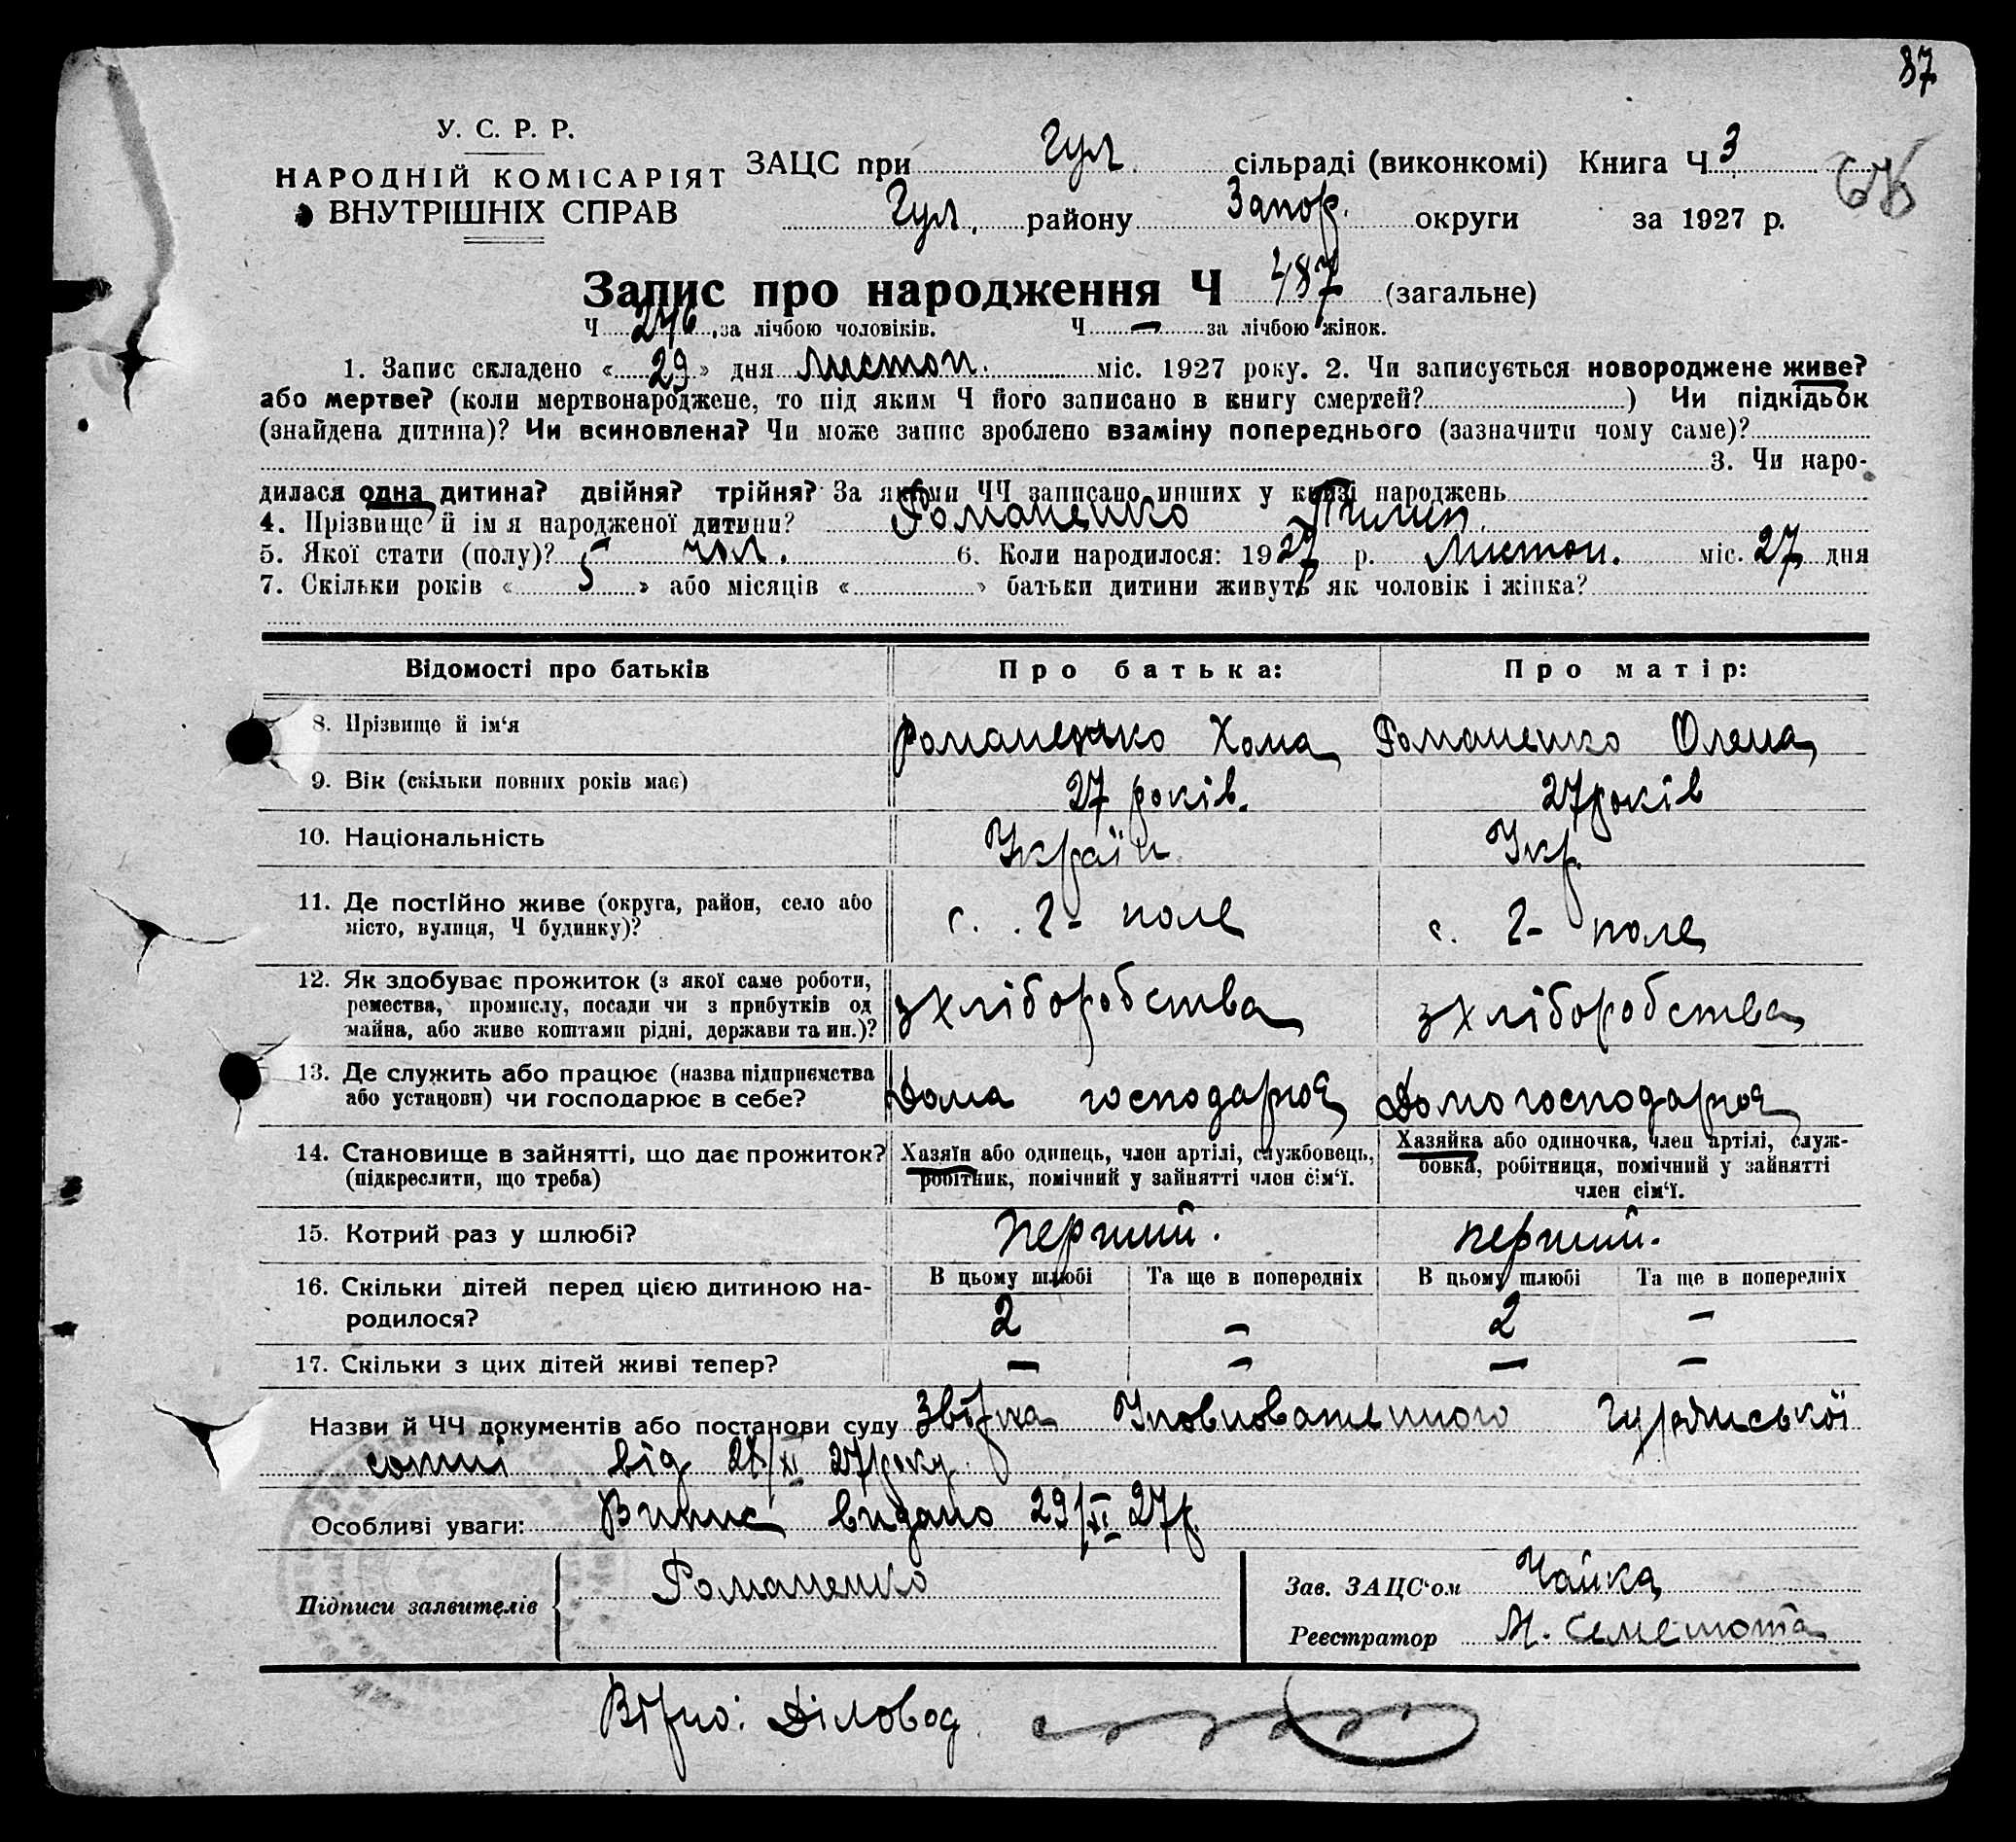 87
У. С. Р. Р.
НАРОДНІЙ КОМІСАРІЯТ
ВНУТРІШНІХ СПРАВ
ЗАЦС при Гул. сільраді (виконкомі) Книга Ч 3
Гул. району Запор. округи за 1927 р.
Запис про народження Ч 487 (загальне)
Ч 246 за лічбою чоловіків. Ч — за лічбою жінок.
1. Запис складено «29» дня листоп. міс. 1927 року. 2. Чи записується новороджене живе?
або мертве? (коли мертвонароджене, то під яким Ч його записано в книгу смертей?) Чи підкідьок
(знайдена дитина)? Чи всиновлена? Чи може запис зроблено взаміну попереднього (зазначити чому саме)?
3. Чи наро-
дилася одна дитина? двійня? трійня? За якими ЧЧ записано инших у книзі народжень
4. Прізвище й ім я народженої дитини? Романенко Пилип.
5. Якої стати (полу)? чол. 6. Коли народилося: 1927 р. Листоп. міс. 27 дня
7. Скільки років «5» або місяців « » батьки дитини живуть як чоловік і жінка?
Відомості про батьків Про батька: Про матір:
8. Прізвище й ім‘я Романенко Хома Романенко Олена
9. Вік (скільки повних років має) 27 років. 27 років
10. Національність Україн Укр.
11. Де постійно живе (округа, район, село або
місто, вулиця, Ч будинку)? с. Г- поле с. Г- поле
12. Як здобуває прожиток (з якої саме роботи,
ремества, промислу, посади чи з прибутків од
майна, або живе коштами рідні, держави та ин.)? з хліборобства з хліборобства
13. Де служить або працює (назва підприємства
або установи) чи господарює в себе? Дома господарює Домогосподарює
14. Становище в зайнятті, що дає прожиток?
(підкреслити, що треба)
Хазяїн або одинець, член артілі, службовець,
робітник, помічний у зайнятті член сім‘ї.
Хазяйка або одиночка, член артілі, служ-
бовка, робітниця, помічний у зайнятті
член сім‘ї.
15. Котрий раз у шлюбі? перший. перший.
16. Скільки дітей перед цією дитиною на-
родилося?
В цьому шлюбі Та ще в попередніх В цьому шлюбі Та ще в попередніх
2 — 2 —
17. Скільки з цих дітей живі тепер? — — — —
Назви й ЧЧ документів або постанови суду Звірка Уповноваженного
сотні від 28/XI 27 року.
Особливі уваги: Випис видано 29/XI 27 р.
Підписи заявителів Романенко
Зав. ЗАЦС‘ом Чайка
Реєстратор М.
Вірно: Діловод